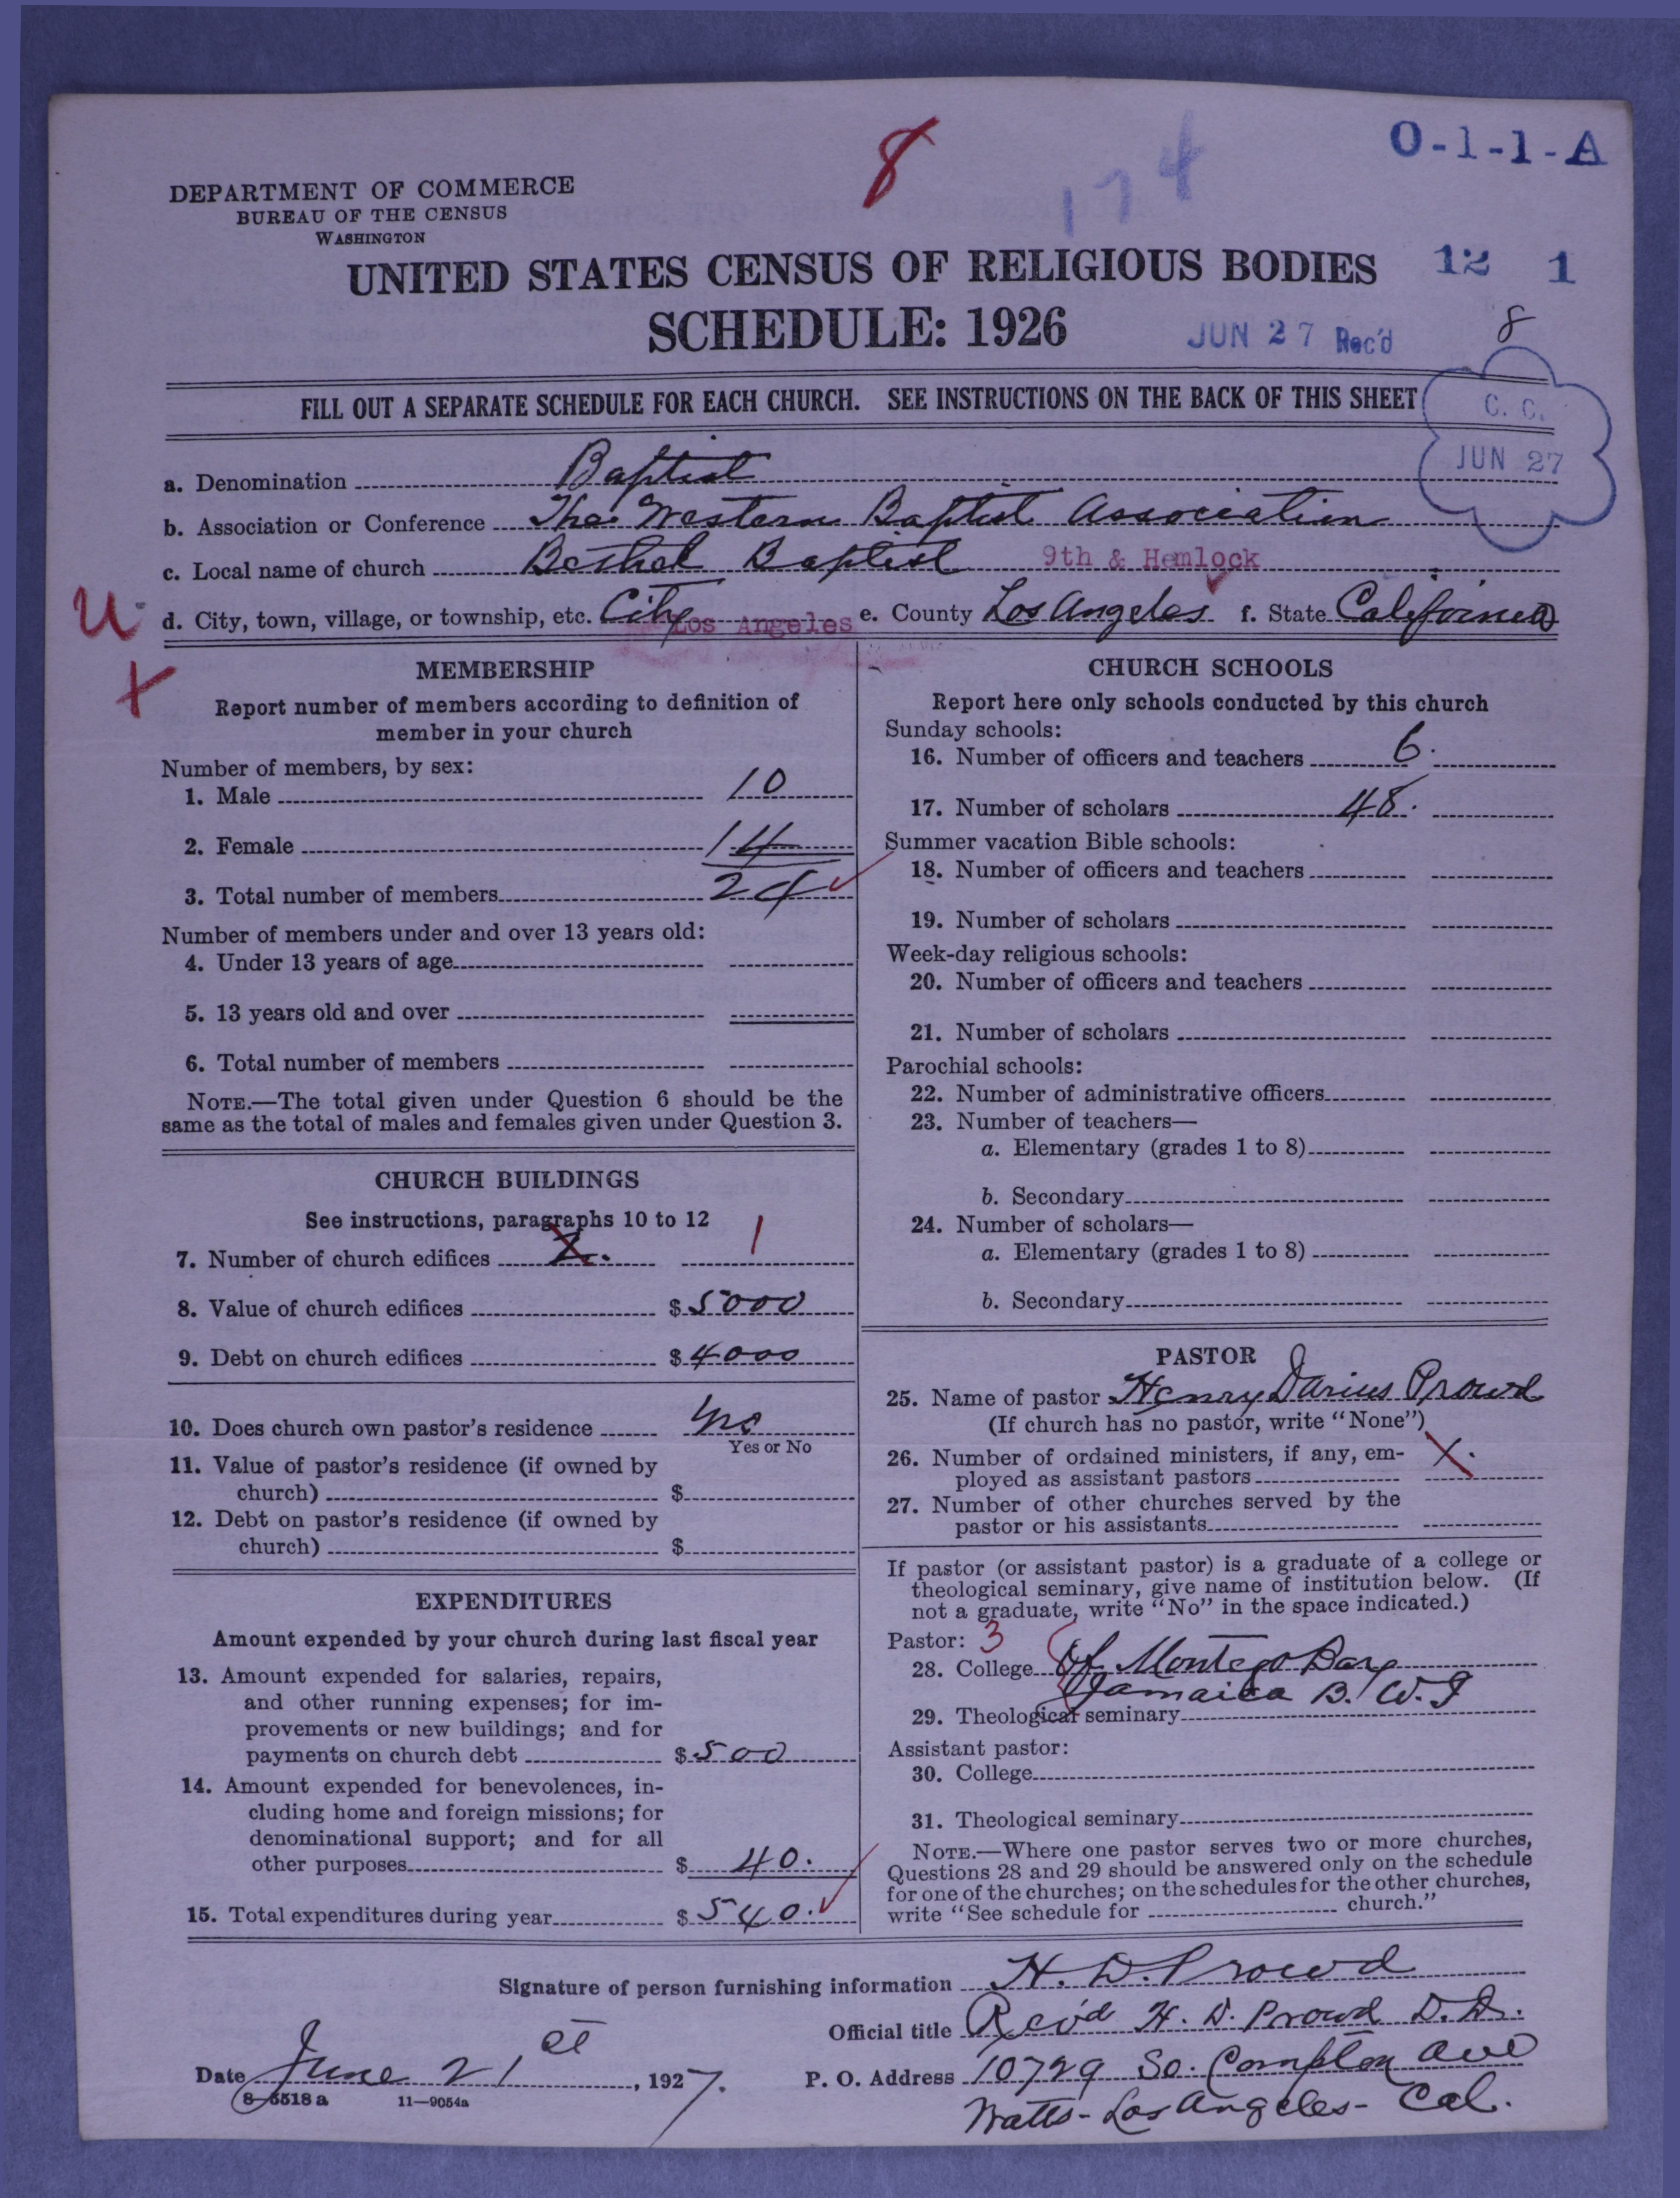 8
174
O-1-1-A
DEPARTMENT OF COMMERCE
BUREAU OF THE CENSUS
WASHINGTON
UNITED STATES CENSUS OF RELIGIOUS BODIES
12 1
SCHEDULE: 1926
JUN 27 Rec'd
8
FILL OUT A SEPARATE SCHEDULE FOR EACH CHURCH. SEE INSTRUCTIONS ON THE BACK OF THIS SHEET
C. C.
JUN 27
a. Denomination Baptist
b. Association or Conference The Western Baptist Association
c. Local name of church Bethel Baptist 9th & Hemlock
U
d. City, town, village, or township, etc. City Los Angeles e. County Los Angeles f. State California
MEMBERSHIP
Report number of members according to definition of
member in your church
Number of members, by sex:
1. Male 10
2. Female 14
3. Total number of members 24
Number of members under and over 13 years old:
4. Under 13 years of age
5. 13 years old and over
6. Total number of members
NOTE.—The total given under Question 6 should be the
same as the total of males and females given under Question 3.
CHURCH BUILDINGS
See instructions, paragraphs 10 to 12
7. Number of church edifices 1
8. Value of church edifices $ 5000
9. Debt on church edifices $ 4000
10. Does church own pastor's residence
Yes or No
11. Value of pastor's residence (if owned by
church) $
12. Debt on pastor's residence (if owned by
church) $
EXPENDITURES
Amount expended by your church during last fiscal year
13. Amount expended for salaries, repairs,
and other running expenses; for im-
provements or new buildings; and for
payments on church debt $ 500
14. Amount expended for benevolences, in-
cluding home and foreign missions; for
denominational support; and for all
other purposes $ 40.
15. Total expenditures during year $ 540.
CHURCH SCHOOLS
Report here only schools conducted by this church
Sunday schools:
16. Number of officers and teachers 6.
17. Number of scholars 48.
Summer vacation Bible schools:
18. Number of officers and teachers
19. Number of scholars
Week-day religious schools:
20. Number of officers and teachers
21. Number of scholars
Parochial schools:
22. Number of administrative officers
23. Number of teachers—
a. Elementary (grades 1 to 8)
b. Secondary
24. Number of scholars—
a. Elementary (grades 1 to 8)
b. Secondary
PASTOR
25. Name of pastor Henry Darius Prowd
(If church has no pastor, write "None")
26. Number of ordained ministers, if any, em-
ployed as assistant pastors
27. Number of other churches served by the
pastor or his assistants
If pastor (or assistant pastor) is a graduate of a college or
theological seminary, give name of institution below. (If
not a graduate, write "No" in the space indicated.)
Pastor: 3
28. College Of Montego Bay
Jamaica B. W. I
29. Theological seminary
Assistant pastor:
30. College
31. Theological seminary
NOTE.—Where one pastor serves two or more churches,
Questions 28 and 29 should be answered only on the schedule
for one of the churches; on the schedules for the other churches,
write "See schedule for church."
Signature of person furnishing information H. D. Prowd
Official title Rev'd H. D. Prowd D. D.
Date June 21st, 1927.
P. O. Address 10729 So. Compton Ave
Watts - Los Angeles - Cal.
8-5518a 11-9054a